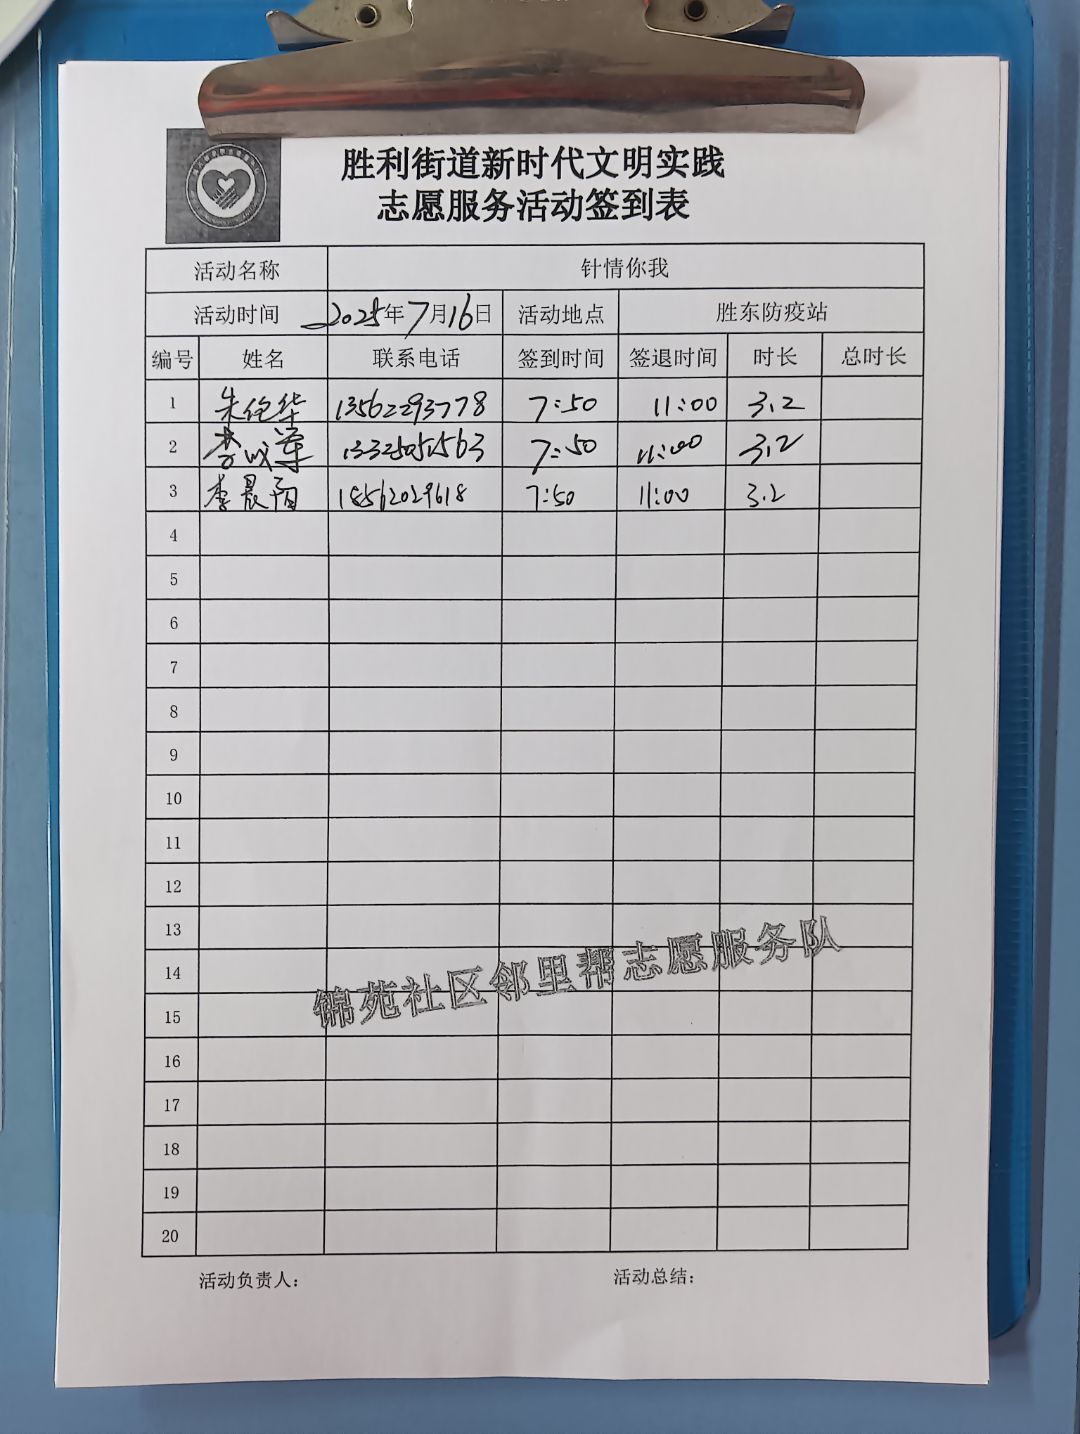 胜利街道新时代文明实践
志愿服务活动签到表
活动名称 针情你我
活动时间 2025年7月16日 活动地点 胜东防疫站
编号 姓名 联系电话 签到时间 签退时间 时长 总时长
1 朱 华 13562293778 7:50 11:00 3.2
2 李 军 7:50 11:00 3.2
3 李晨雨 18562029618 7:50 11:00 3.2
4
5
6
7
8
9
10
11
12
13
14
15
16
17
18
19
20
锦苑社区邻里帮志愿服务队
活动负责人： 活动总结：